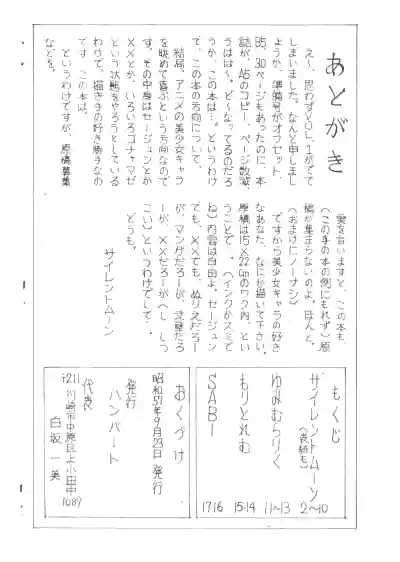 あとがき
え〜、思わずVOL.1がでて
しまいました。なんと申しまし
ょうか、準備号がオフセット、
B5、30ページもあったのに、本
誌が、A5のコピー、ページ数減、
うはは〜、ど〜なってるのだろ
うか、この本は…。というわけ
で、この本の方向について。
結局、アニメの美少女キャラ
を眺めて喜ぶという方向なので
す。その中身はセージュンとか
××とか、いろいろゴチャマゼ
という状態をやろうとしている
わけで、描き手の好き勝手なの
です、この本は。
というわけですが、原稿募集
などを。
実を言いますと、この本も、
(この手の本の例にもれず)原
稿が集まらないのよ、ほんと。
(おまけにノーナシ)
ですから美少女キャラの好き
なあなた、なにか描いて下さい。
原稿は15×22cmのワク内、とい
うことで。(インクかスミで
ね)内容は自由よ。セージュン
でも、××でも、ぬりえだろー
が、マンガだろーが、文章だろ
ーが、××だろーが(し、しつ
こい)というわけでして…、
どうも。
サイレントムーン
もくじ
サイレントムーン 2〜10
(表紙も)
ゆみむらりく 11〜13
もりとれむ 15・14
SABI 17・16
おくづけ
昭和57年9月23日 発行
発行
ハンバート
代表
〒211
川崎市中原区上小田中
1089
白坂 一美